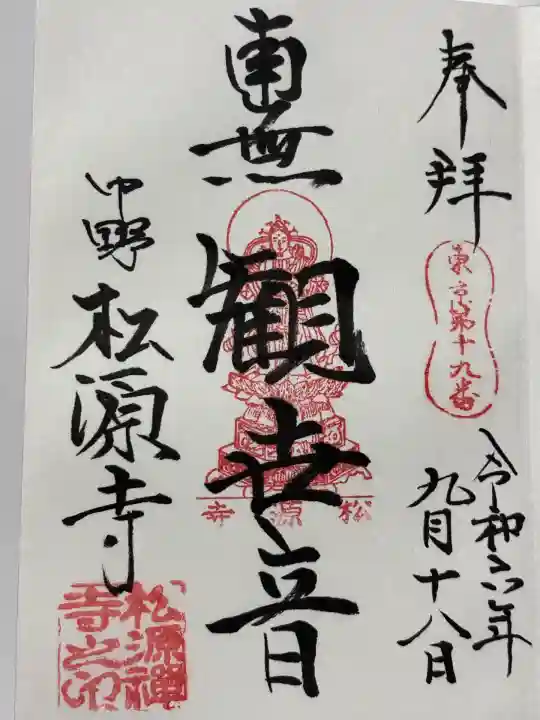 奉拝
東京第十九番
令和六年
九月十八日
南無
觀世音
松源寺
中野
松源寺
松源禅寺之印